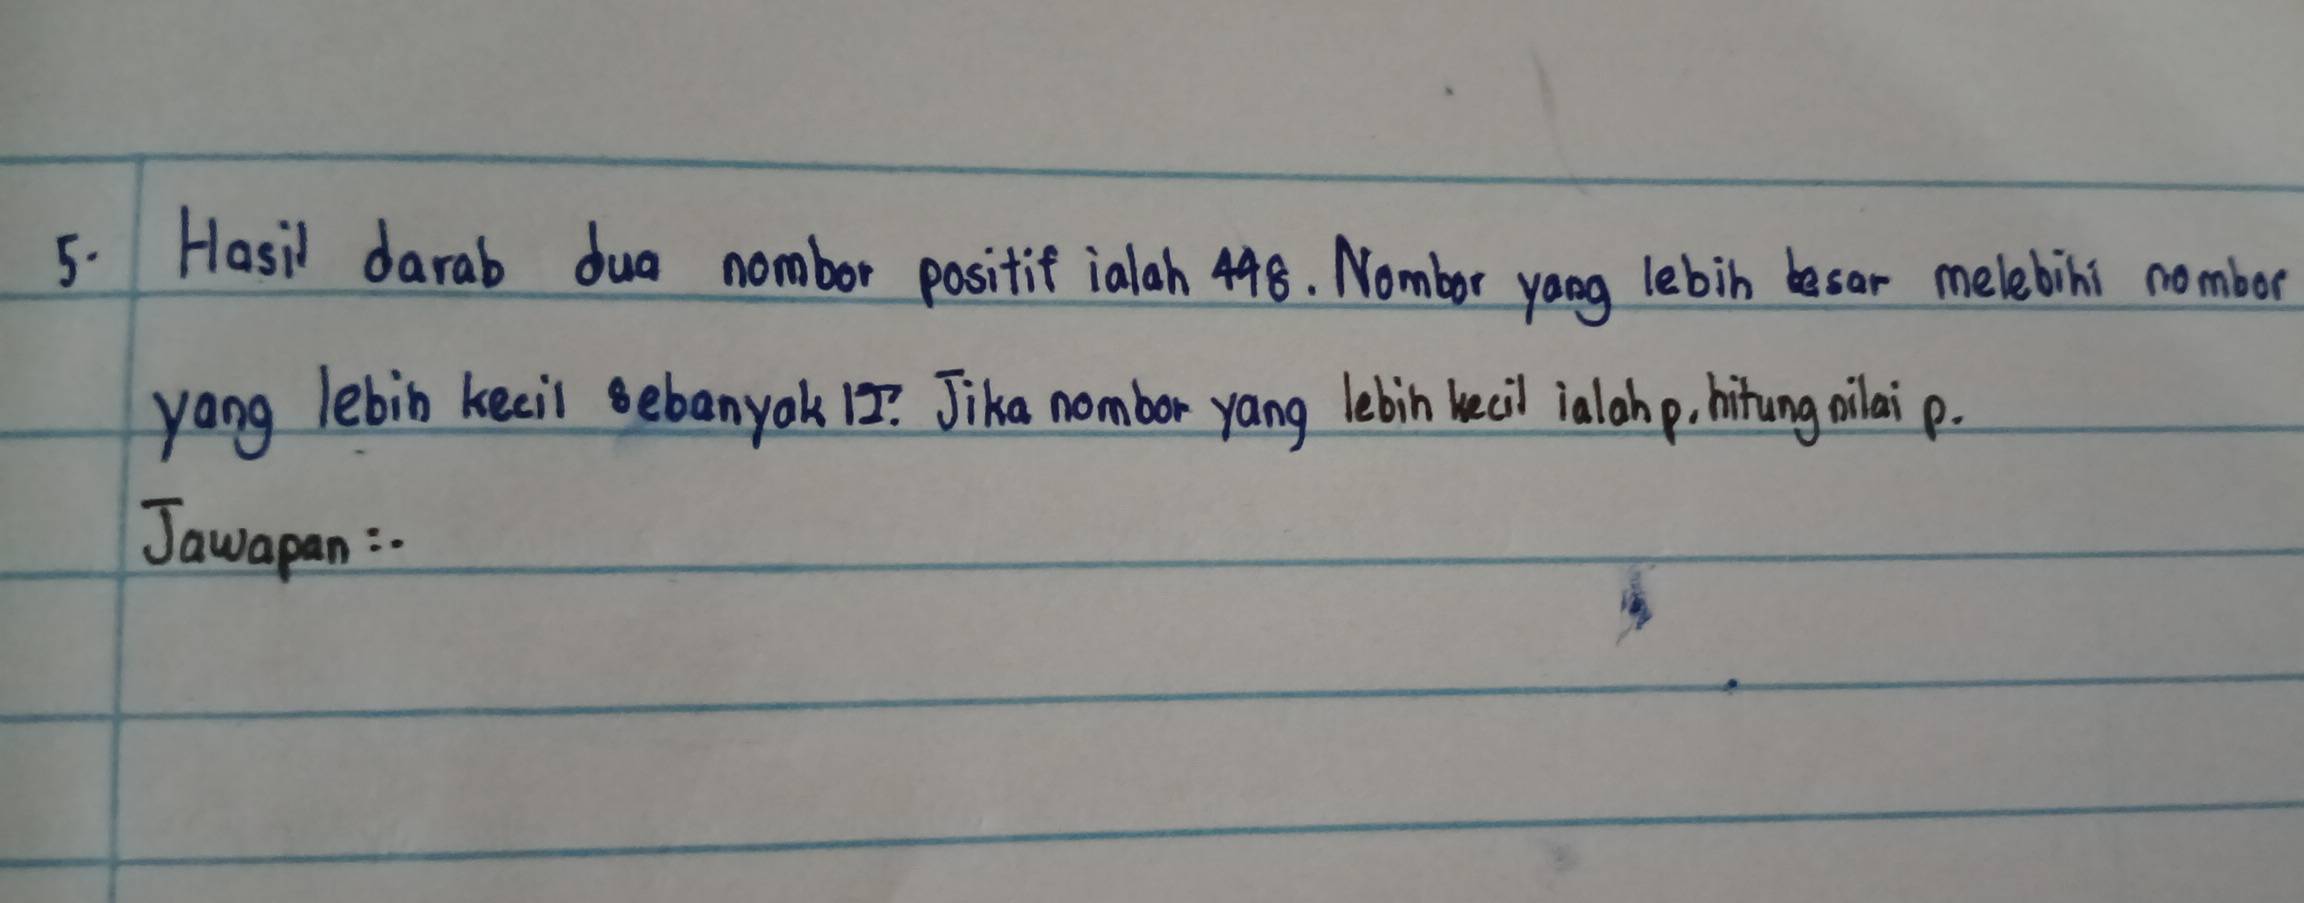 5. Hasil darab dua nombor positif ialah 448. Nombor yang lebih besar melebihi nombor
yang lebih kecil sebanyak Jika nombor yang lebih kecil ialah p, hitung nilai p.
Jawapan :-